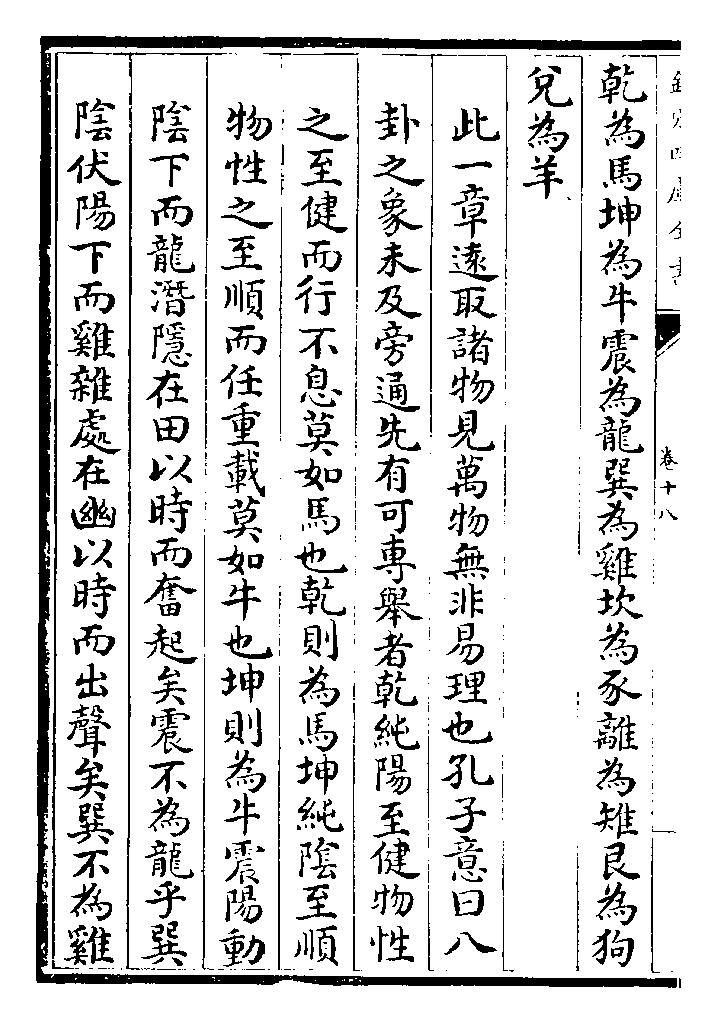 欽定四庫全書
卷十八
乾為馬坤為牛震為龍巽為雞坎為豕離為雉艮為狗
兌為羊
此一章逺取諸物見萬物無非易理也孔子意曰八
卦之象未及旁通先有可專舉者乾純陽至健物性
之至健而行不息莫如馬也乾則為馬坤純陰至順
物性之至順而任重載莫如牛也坤則為牛震陽動
陰下而龍潛隱在田以時而奮起矣震不為龍乎巽
陰伏陽下而雞雜處在幽以時而出聲矣巽不為雞